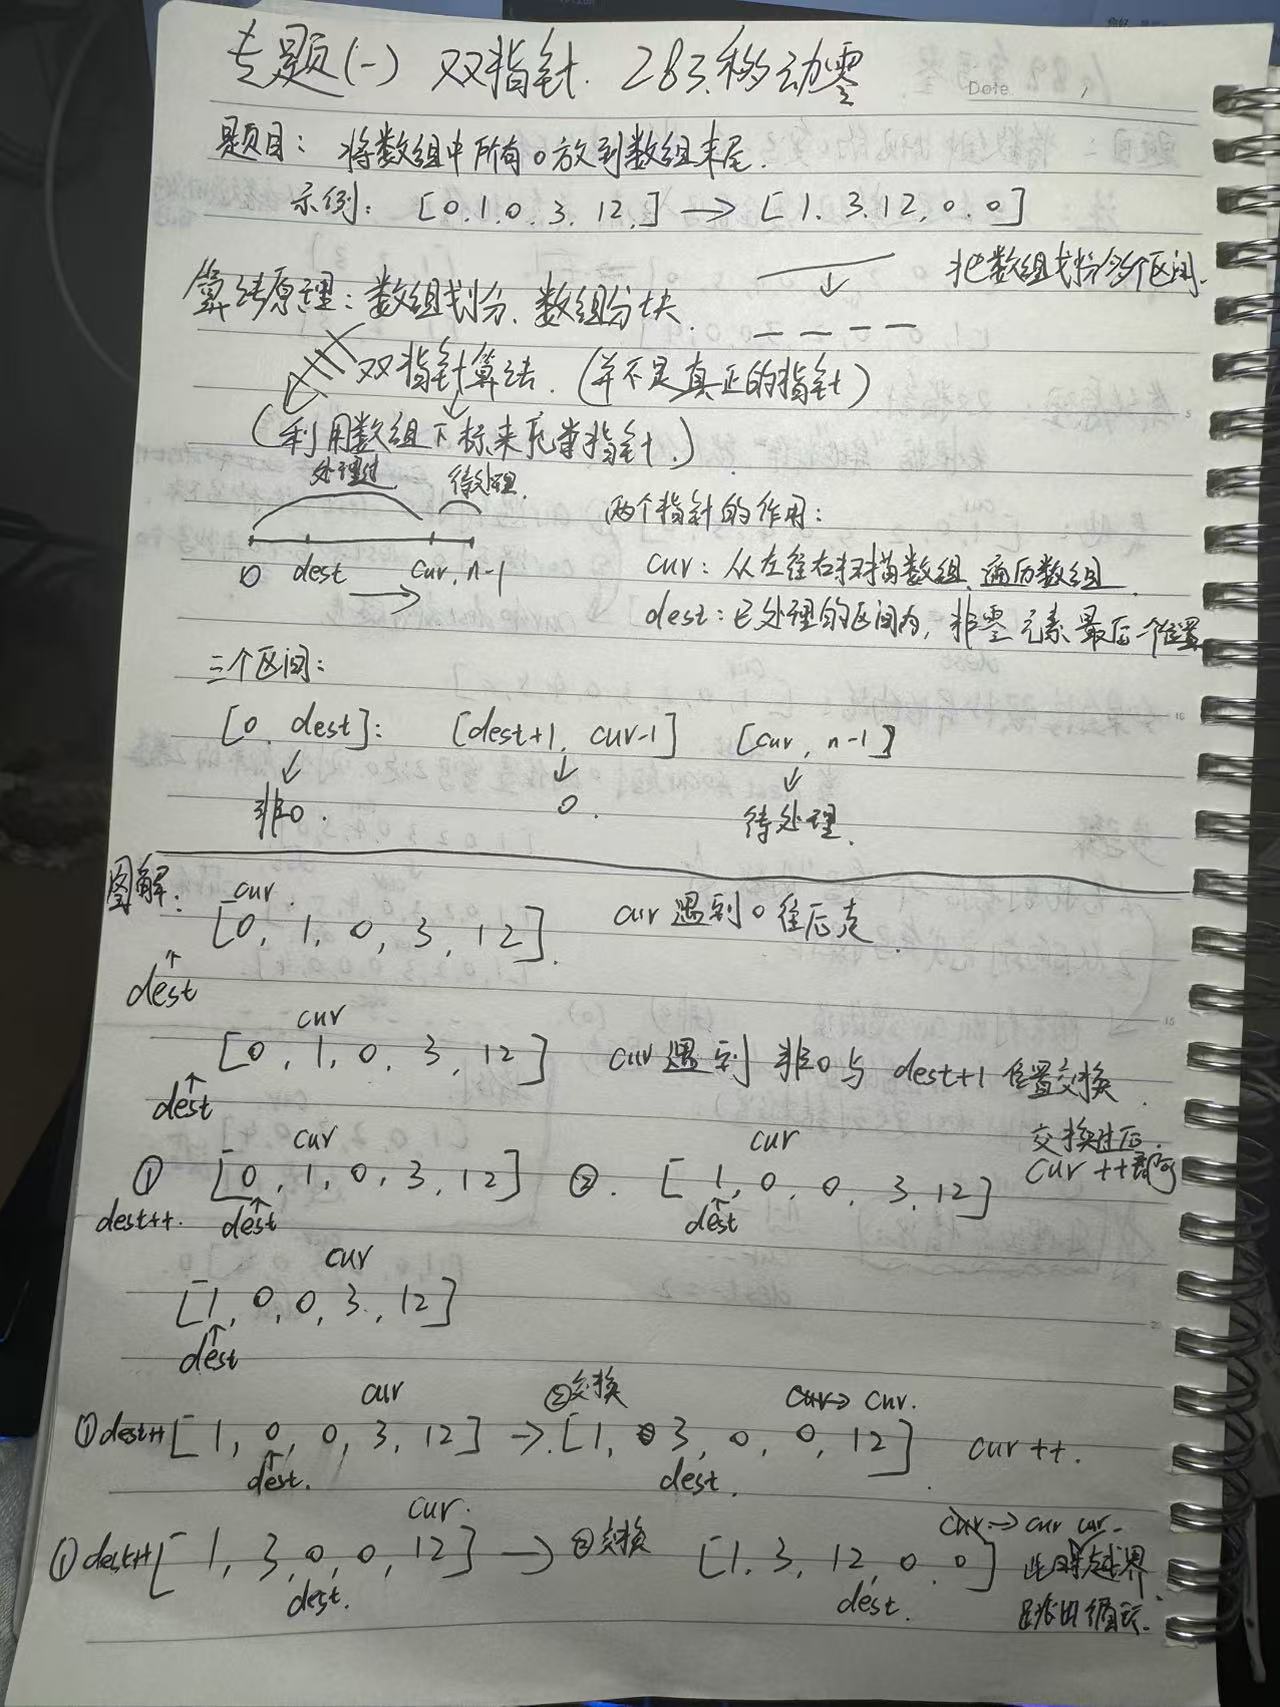 专题(一) 双指针. 283.移动零
Date
题目: 将数组中所有0放到数组末尾.
示例: [0.1.0.3.12.] → [1.3.12.0.0]
把数组划分多个区间.
算法原理: 数组划分、数组分块.
双指针算法. (并不是真正的指针)
(利用数组下标来充当指针.)
处理过 待处理.
0 dest → cur, n-1
两个指针的作用:
cur: 从左往右扫描数组、遍历数组
dest: 已处理的区间内, 非零元素最后一个位置
三个区间:
[0, dest]: [dest+1, cur-1] [cur, n-1]
非0. 0. 待处理.
图解:
cur.
[0, 1, 0, 3, 12]. cur 遇到0往后走
dest
cur
[0, 1, 0, 3, 12] cur 遇到 非0与 dest+1 位置交换
dest
交换过后.
cur cur cur ++即可
① [0, 1, 0, 3, 12] ②. [1, 0, 0, 3, 12]
dest++. dest dest
cur
[1, 0, 0, 3, 12]
dest
cur ②交换 cur→ cur.
①dest++ [1, 0, 0, 3, 12] → [1, 3, 0, 0, 12] cur ++.
dest. dest.
cur. cur→ cur cur.
①dest++ [1, 3, 0, 0, 12] → ②交换 [1. 3, 12, 0, 0] 此时越界
dest. dest. 跳出循环.